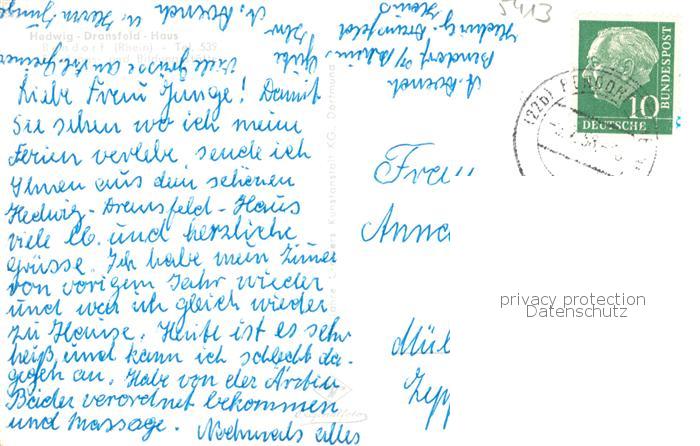 Hedwig-Dransfeld-Haus
Bendorf (Rhein) - Tel. 539
Liebe Frau Junge! Damit
Sie sehen wo ich meine
Ferien verlebe, sende ich
Ihnen aus dem schönen
Hedwig-Dransfeld-Haus
viele lb. und herzliche
Grüsse. Ich habe mein Zimmer
von vorigem Jahr wieder
und war ich gleich wieder
zu Hause. Heute ist es sehr
heiß und kann ich schlecht da-
gegen an. Habe von der Ärztin
Bäder verordnet bekommen
und Massage. Nochmals alles
Kunstanstalt KG. Dortmund
Hedwig-Dransfeld
Haus
Bendorf a/Rhein
5413
10
DEUTSCHE
BUNDESPOST
(22b) BENDORF
Frau
Anna
Mül
Zepp
privacy protection
Datenschutz